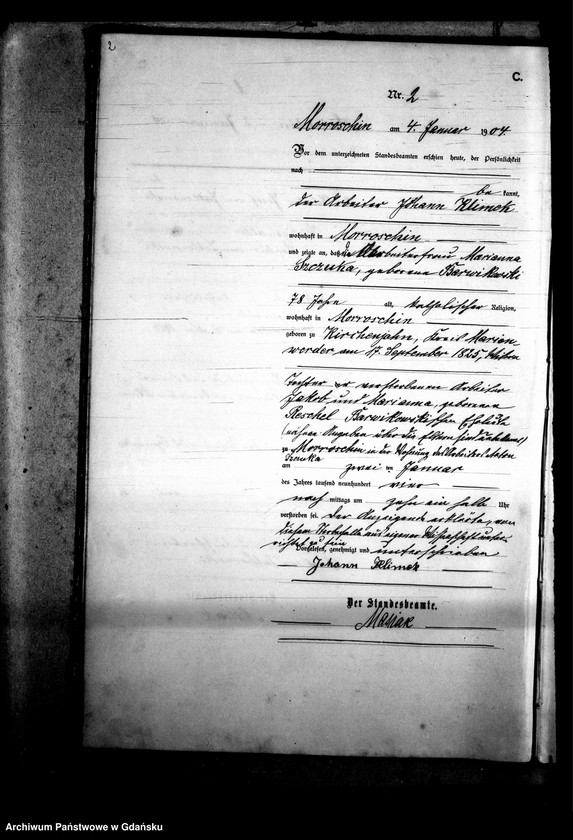 2
C.
Nr. 2
Morroschin am 4. Januar 1904
Vor dem unterzeichneten Standesbeamten erschien heute, der Persönlichkeit
nach
be kannt,
der Arbeiter Johann Klimek
wohnhaft in Morroschin
und zeigte an, daß die Arbeiterfrau Marianna
Szczuka, geborene Barwikowski
78 Jahre alt, katholischer Religion,
wohnhaft in Morroschin
geboren zu Kirchenjahn, Kreis Marien
werder am 17. September 1825,
Tochter der verstorbenen Arbeiter
Jakob und Marianna, geborene
Reschel Barwikowski'schen Eheleute
(nähere Angaben über die Eltern sind unbekannt)
zu Morroschin in der Wohnung des Arbeiters
Szczuka
am zwei ten Januar
des Jahres tausend neunhundert vier
nach mittags um zehn ein halb Uhr
verstorben sei. Der Anzeigende erklärte, von
diesem Sterbefalle aus eigener Wissenschaft unter-
richtet zu sein
Vorgelesen, genehmigt und unterschrieben
Johann Klimek
Der Standesbeamte.
Masiak
Archiwum Państwowe w Gdańsku